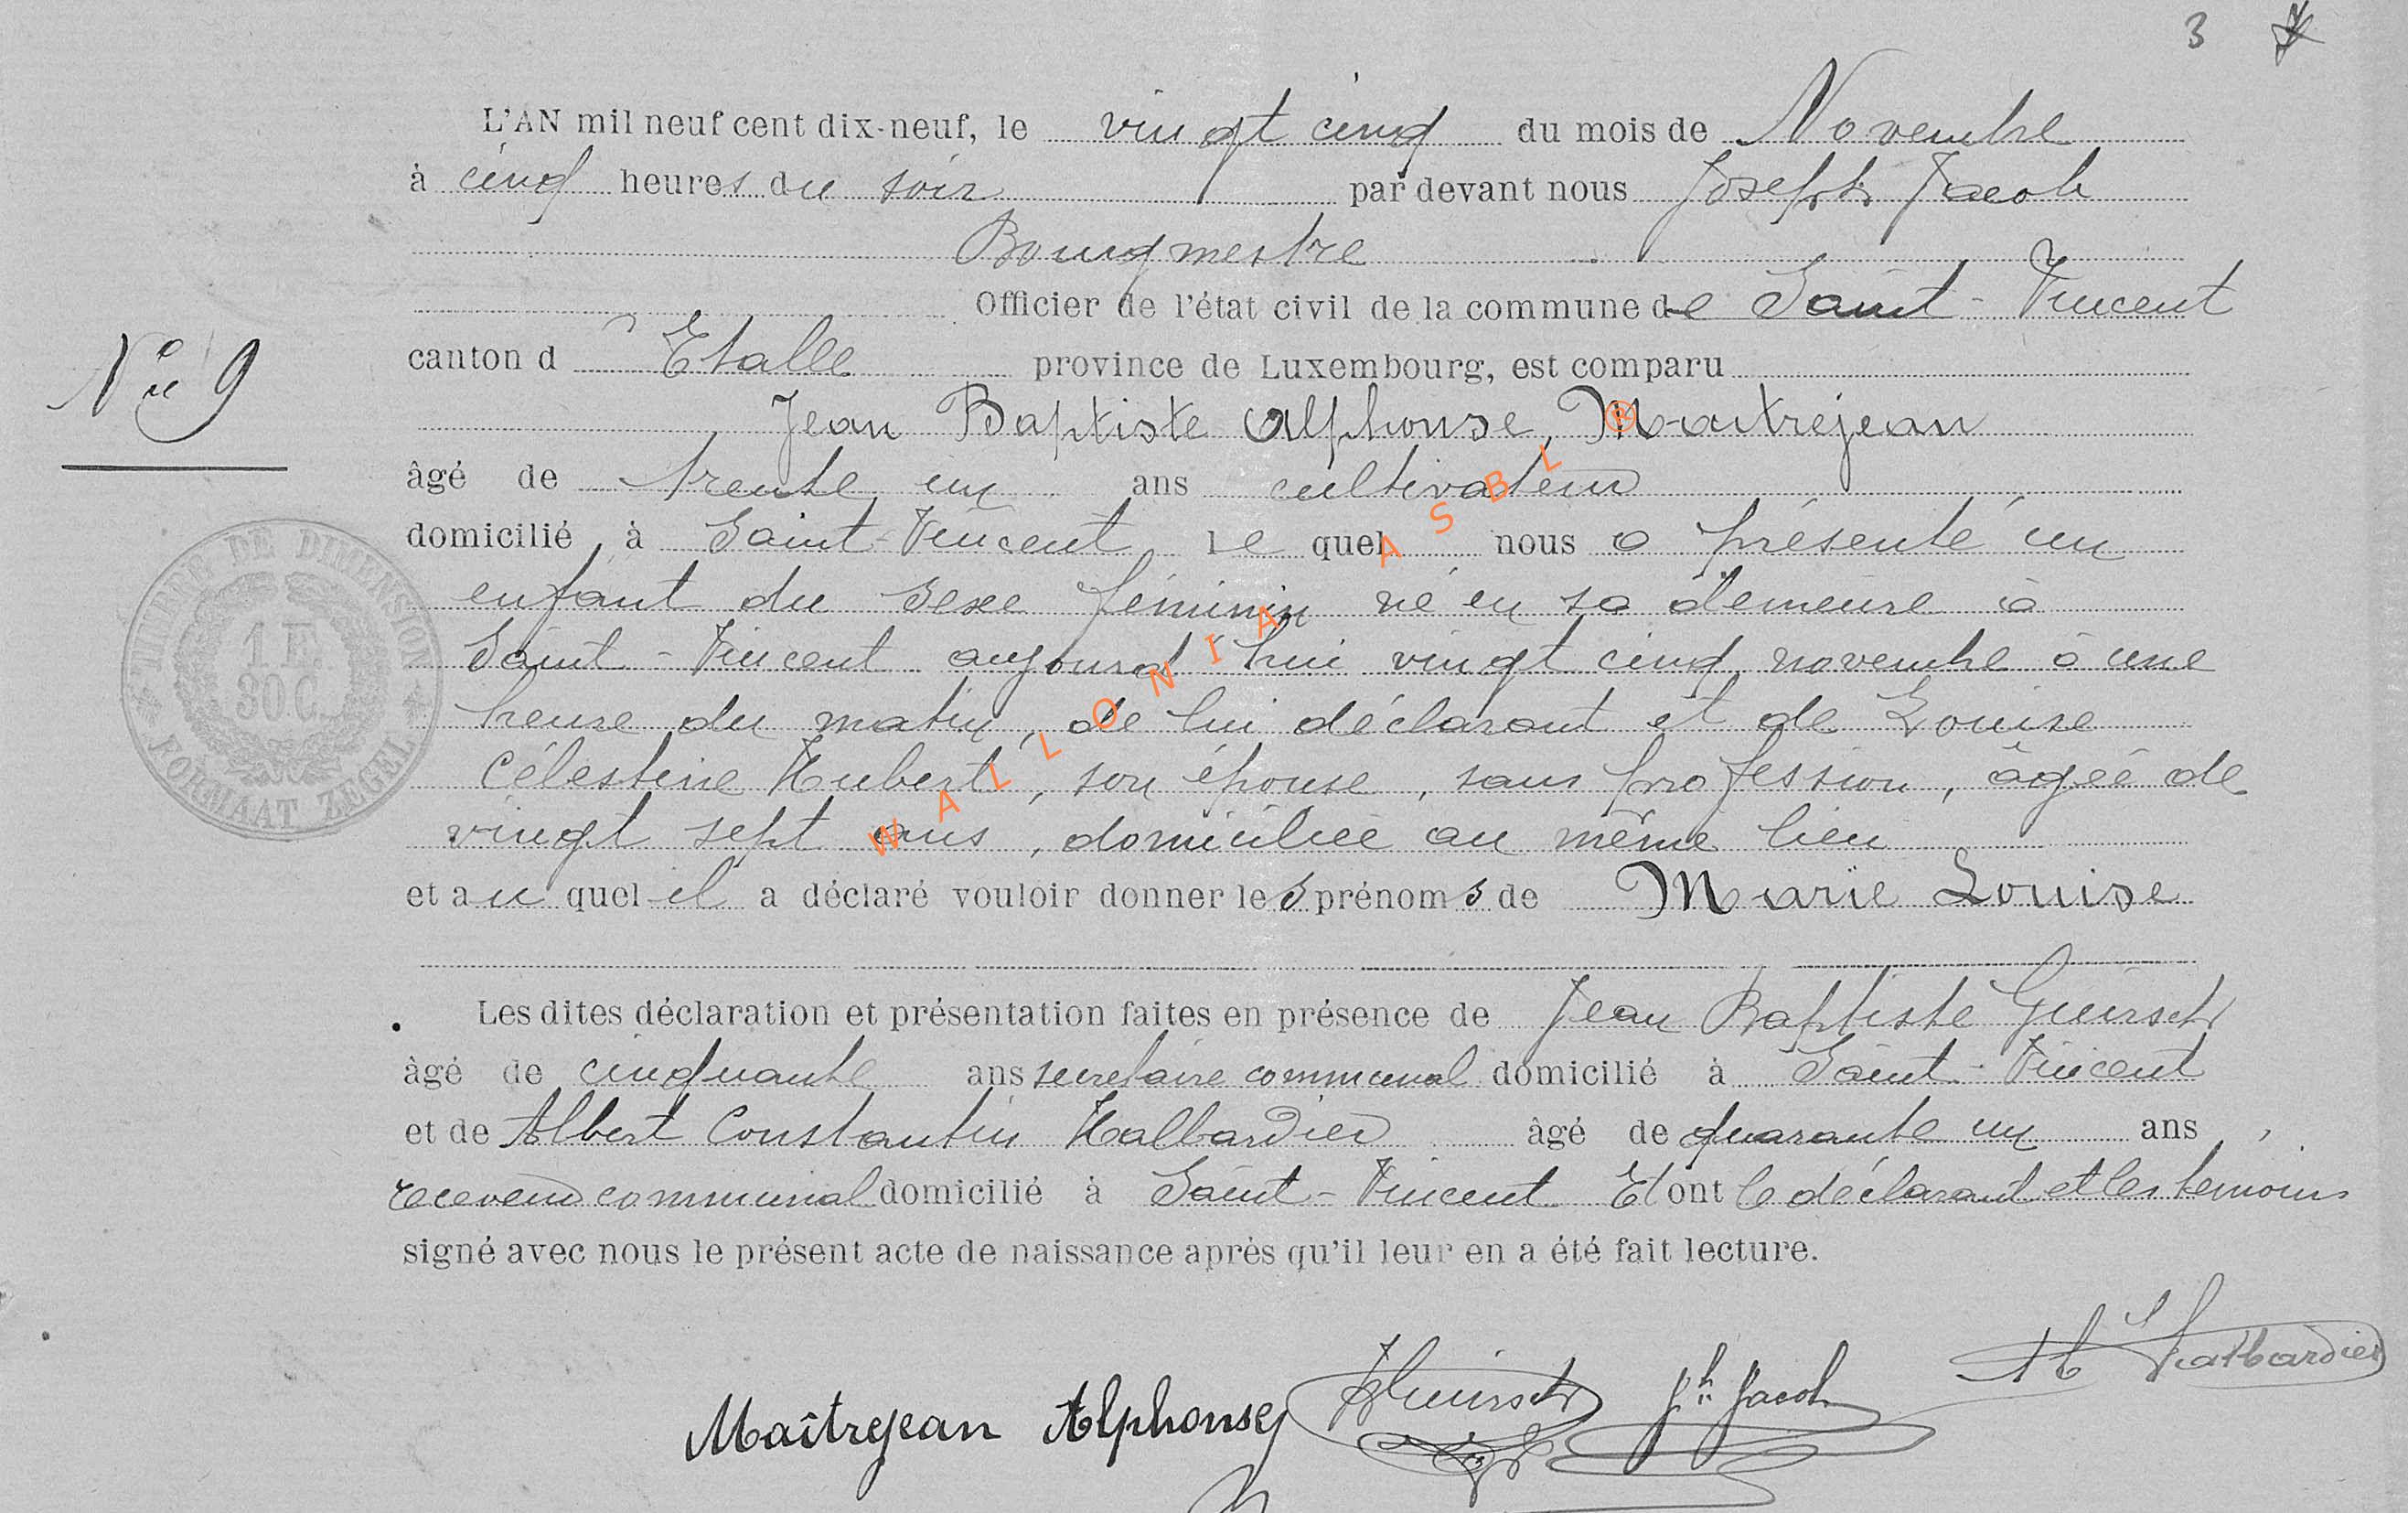 3
L'AN mil neuf cent dix-neuf, le vingt cinq du mois de Novembre
à cinq heures du soir par devant nous Joseph Jacob
Bourgmestre
Officier de l'état civil de la commune de Saint-Vincent
canton d'Etalle province de Luxembourg, est comparu
N° 9
Jean Baptiste Alphonse, Maitrejean
âgé de trente un ans cultivateur
domicilié à Saint-Vincent lequel nous a présenté un
enfant du sexe féminin né en sa demeure à
Saint-Vincent aujourd'hui vingt cinq novembre à une
heure du matin, de lui déclarant et de Louise
Célestine Hubert, son épouse, sans profession, âgée de
vingt sept ans, domiciliée au même lieu
et au quel il a déclaré vouloir donner les prénoms de Marie Louise
Les dites déclaration et présentation faites en présence de Jean Baptiste Guirsch
âgé de cinquante ans secretaire communal domicilié à Saint-Vincent
et de Albert Constantin Halbardier âgé de quarante un ans,
receveur communal domicilié à Saint-Vincent Et ont le déclarant et les temoins
signé avec nous le présent acte de naissance après qu'il leur en a été fait lecture.
Maîtrejean Alphonse JBGuirsch Jh Jacob AC Halbardier
TIMBRE DE DIMENSION
1 F.
30 C.
FORMAAT ZEGEL
WALLONIA ASBL ®